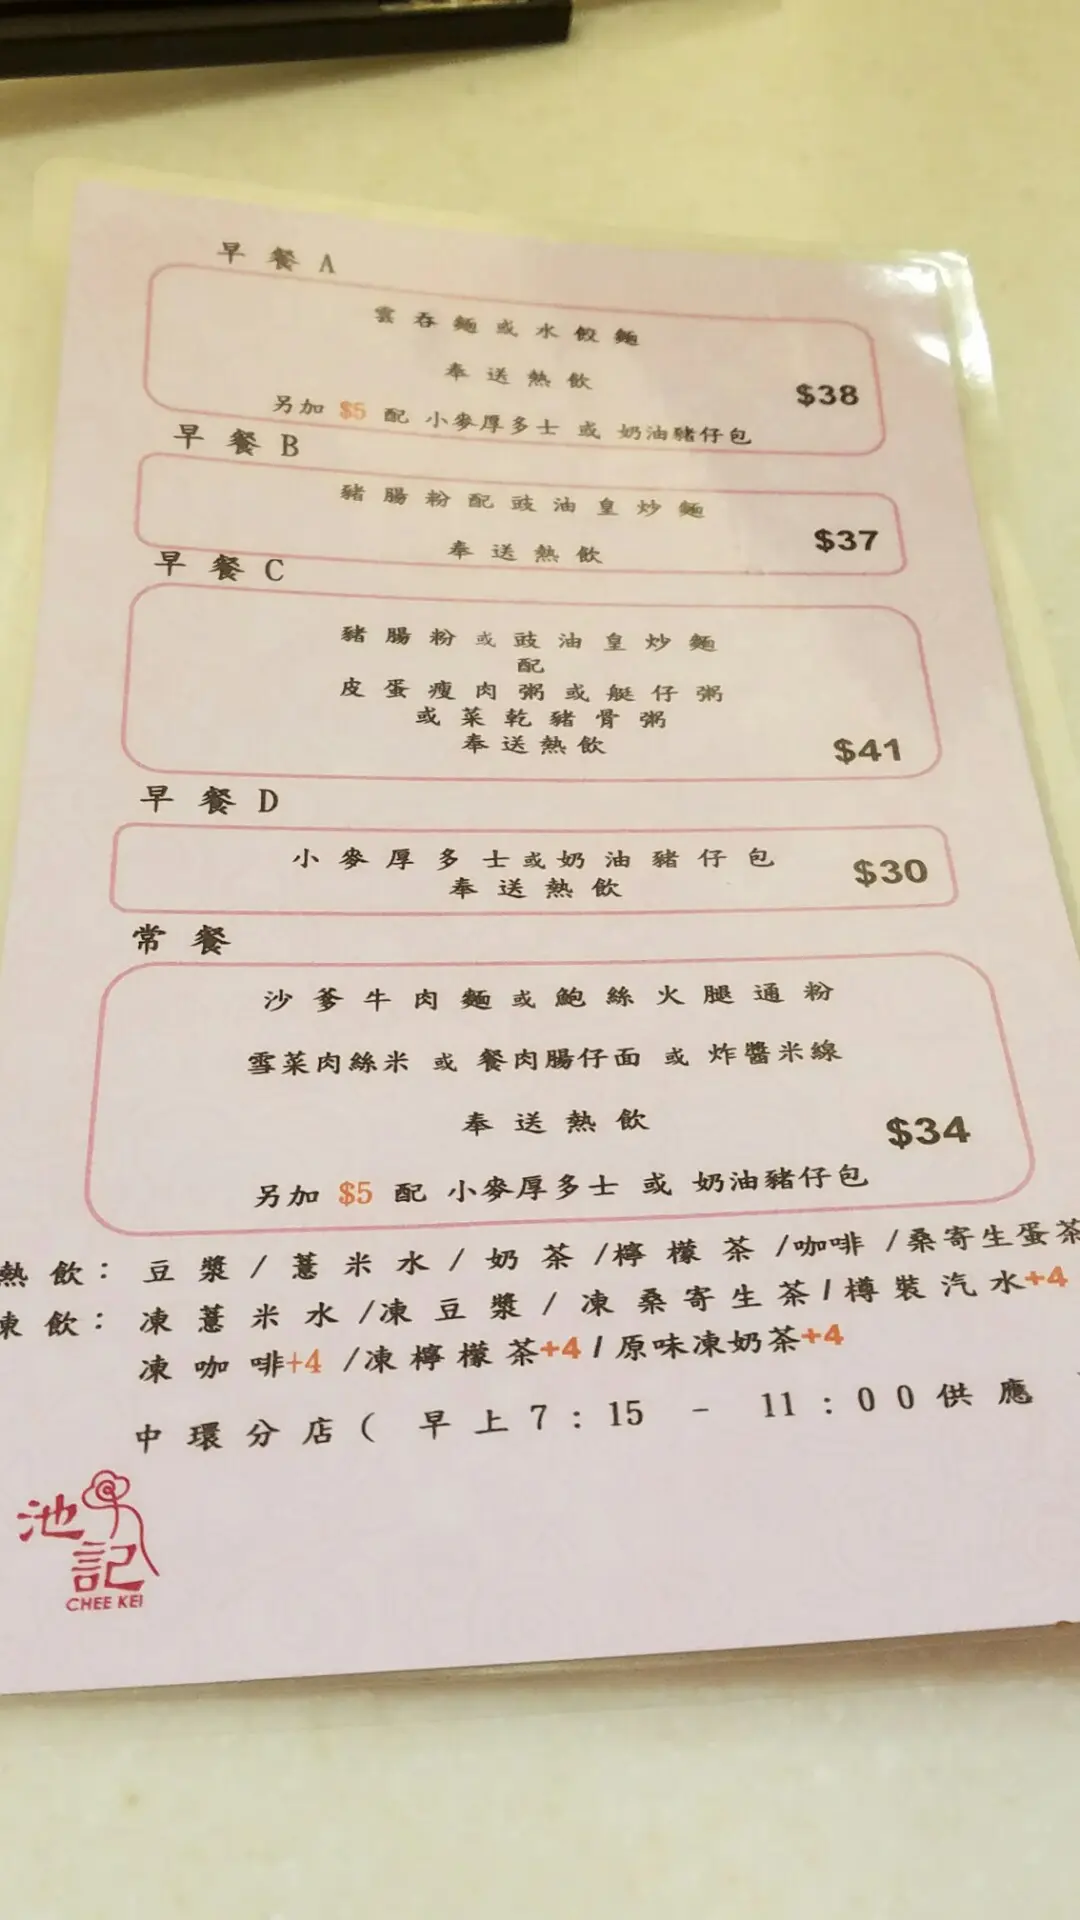 早餐A
雲吞麵或水餃麵
奉送熱飲
$38
另加 $5 配 小麥厚多士 或 奶油豬仔包
早餐B
豬腸粉配豉油皇炒麵
$37
奉送熱飲
早餐C
豬腸粉或豉油皇炒麵
配
皮蛋瘦肉粥或艇仔粥
或菜乾豬骨粥
奉送熱飲
$41
早餐D
小麥厚多士或奶油豬仔包
$30
奉送熱飲
常餐
沙爹牛肉麵或鮑絲火腿通粉
雪菜肉絲米 或 餐肉腸仔面 或 炸醬米線
奉送熱飲
$34
另加 $5 配 小麥厚多士 或 奶油豬仔包
熱飲：豆漿/薏米水/奶茶/檸檬茶/咖啡/桑寄生蛋茶
凍飲：凍薏米水/凍豆漿/凍桑寄生茶/樽裝汽水+4
凍咖啡+4 /凍檸檬茶+4/原味凍奶茶+4
中環分店( 早上7:15 - 11:00供應
池記
CHEE KEI